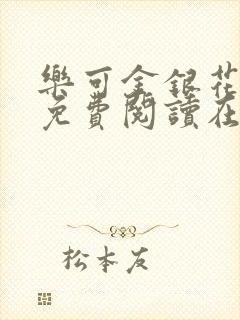 樂可金銀花
免費閱讀在
松本友